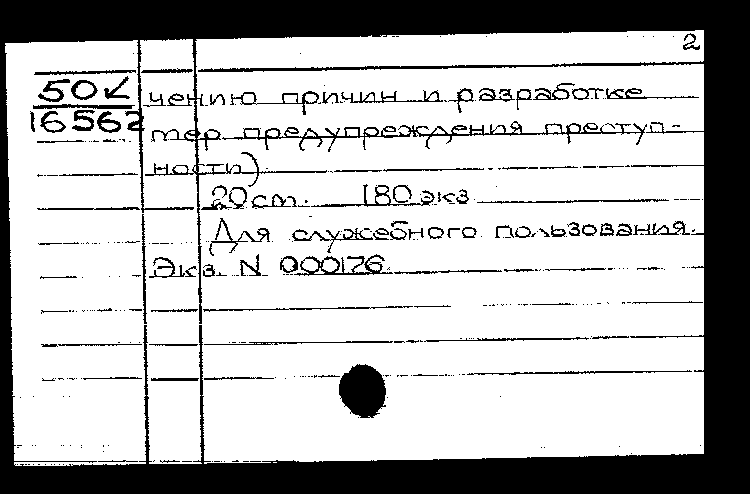 2
50к
16562
чению причин и разработке
мер предупреждения преступ-
ности)
20 см. 180 экз
Для служебного пользования.
Экз. N 000176.